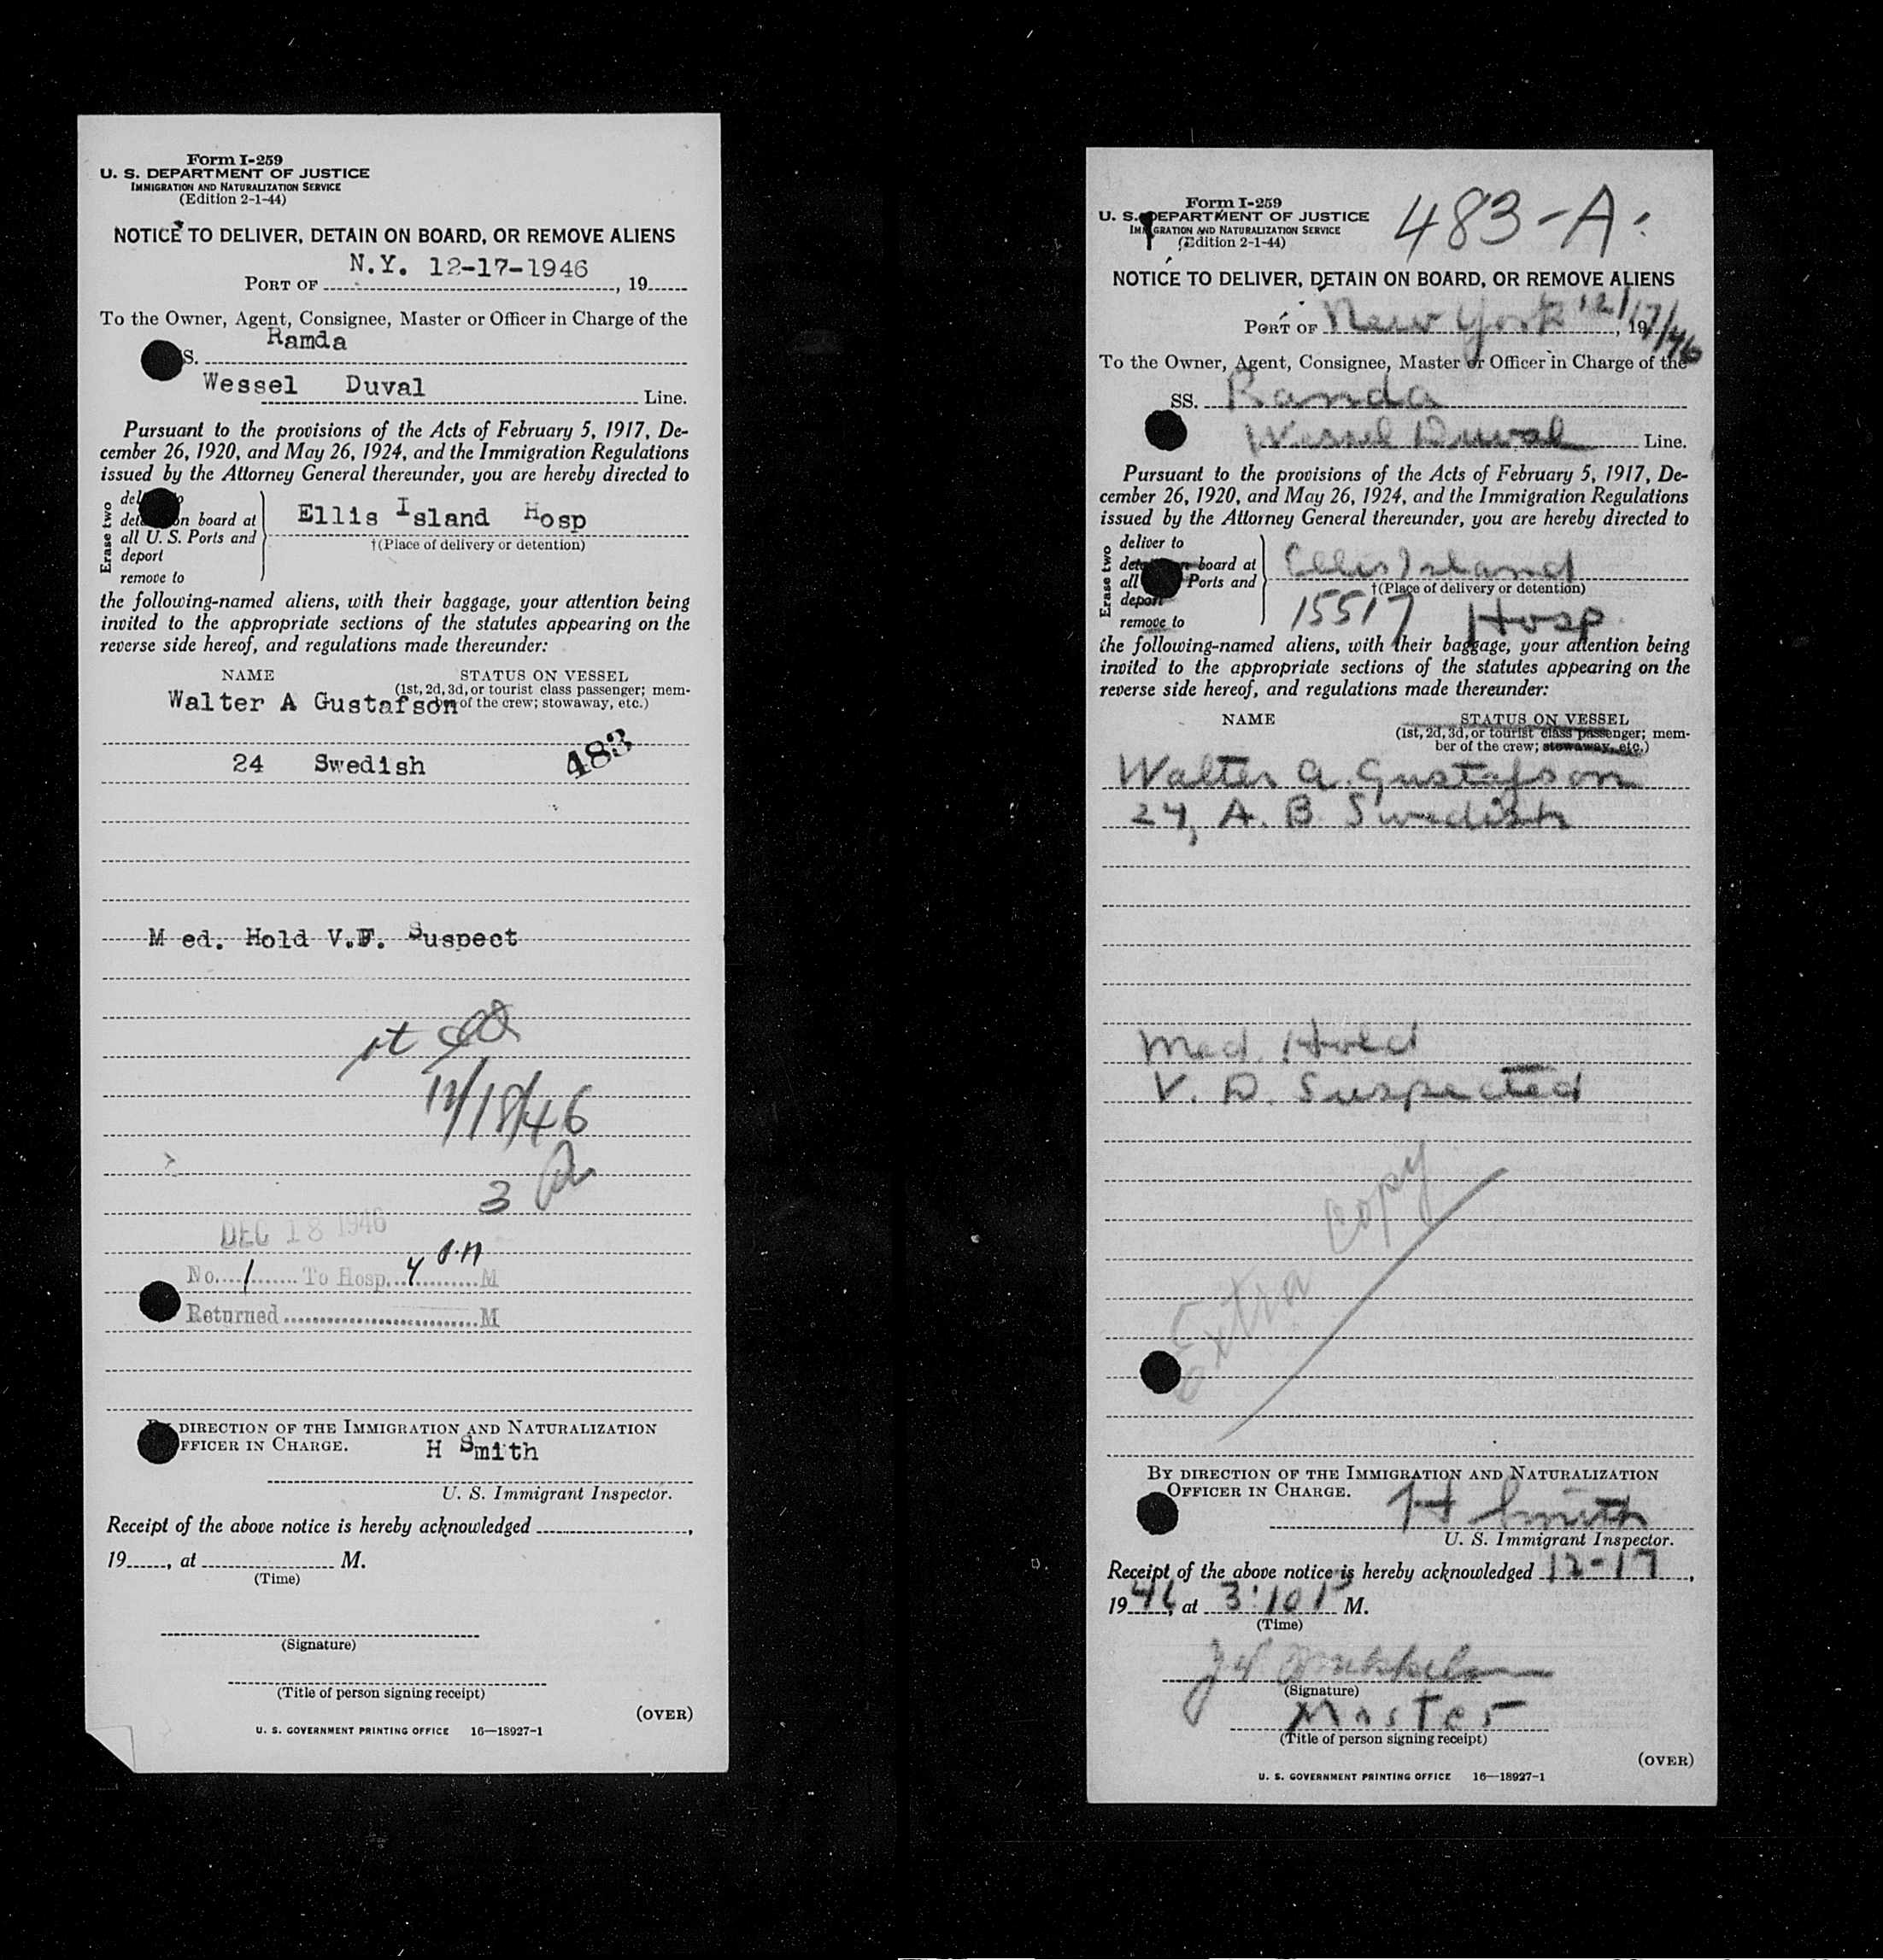 Form I-259
U. S. DEPARTMENT OF JUSTICE
IMMIGRATION AND NATURALIZATION SERVICE
(Edition 2-1-44)
NOTICE TO DELIVER, DETAIN ON BOARD, OR REMOVE ALIENS
N.Y. 12-17-1946
PORT OF , 19
To the Owner, Agent, Consignee, Master or Officer in Charge of the
Ramda
S.
Wessel Duval
Line.
Pursuant to the provisions of the Acts of February 5, 1917, De-
cember 26, 1920, and May 26, 1924, and the Immigration Regulations
issued by the Attorney General thereunder, you are hereby directed to
Erase two
on board at
all U. S. Ports and
deport
remove to
Ellis Island Hosp
†(Place of delivery or detention)
the following-named aliens, with their baggage, your attention being
invited to the appropriate sections of the statutes appearing on the
reverse side hereof, and regulations made thereunder:
NAME STATUS ON VESSEL
(1st, 2d, 3d, or tourist class passenger; mem-
Walter A Gustafson of the crew; stowaway, etc.)
483
24 Swedish
M ed. Hold V.F. Suspect
12/18/46
3
DEC 18 1946
No. 1 To Hosp. 4 M
Returned M
DIRECTION OF THE IMMIGRATION AND NATURALIZATION
FFICER IN CHARGE. H Smith
U. S. Immigrant Inspector.
Receipt of the above notice is hereby acknowledged ,
19 , at M.
(Time)
(Signature)
(Title of person signing receipt)
(OVER)
U. S. GOVERNMENT PRINTING OFFICE 16—18927-1
Form I-259
U. S. DEPARTMENT OF JUSTICE
IMMIGRATION AND NATURALIZATION SERVICE
(Edition 2-1-44)
483-A
NOTICE TO DELIVER, DETAIN ON BOARD, OR REMOVE ALIENS
PORT OF New York 12/17/46 , 19
To the Owner, Agent, Consignee, Master or Officer in Charge of the
SS. Randa
Wessel Duval Line.
Pursuant to the provisions of the Acts of February 5, 1917, De-
cember 26, 1920, and May 26, 1924, and the Immigration Regulations
issued by the Attorney General thereunder, you are hereby directed to
Erase two
deliver to
board at
all Ports and
deport
remove to
Ellis Island
†(Place of delivery or detention)
15517 Hosp.
the following-named aliens, with their baggage, your attention being
invited to the appropriate sections of the statutes appearing on the
reverse side hereof, and regulations made thereunder:
NAME STATUS ON VESSEL
(1st, 2d, 3d, or tourist class passenger; mem-
ber of the crew; stowaway, etc.)
Walter A. Gustafson
24, A. B. Swedish
Med. Hold
V. D. Suspected
Extra copy
BY DIRECTION OF THE IMMIGRATION AND NATURALIZATION
OFFICER IN CHARGE. H Smith
U. S. Immigrant Inspector.
Receipt of the above notice is hereby acknowledged 12-17 ,
19 46, at 3:10 P M.
(Time)
(Signature)
Master
(Title of person signing receipt)
(OVER)
U. S. GOVERNMENT PRINTING OFFICE 16—18927-1